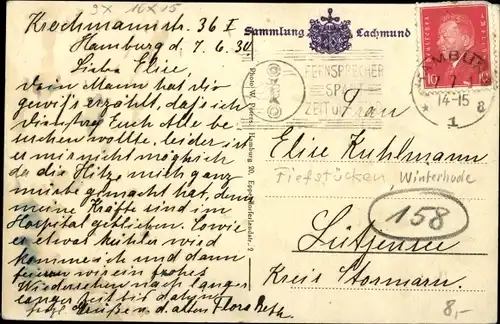 3x 16x15
Krochmannstr. 36 I
Hamburg d. 7.6.30
Liebe Elise,
Dein Mann hat dir
gewiss erzählt, dass ich
Dienstag Euch Alle be
suchen wollte, leider ist
es mir nicht möglich
da die Hitze mich ganz
müde gemacht hat, denn
meine Kräfte sind im
Hospital geblieben. Sowie
es etwas kühler wird
komme ich und dann
feiern wir ein frohes
Wiedersehen nach langer
langer Zeit bis dahin
Grüße u. d. alten Flora Beta
Sammlung Lachmund
Photo W. Hamburg 20, Eppendorferlandstr. 2
FERNSPRECHER
SPART
ZEIT U
HAMBURG
14-15 8
1
Frau
Elise Kuhlmann
Tiefstücken, Winterhude
158
Lütjensee
Kreis Stormarn.
8,-